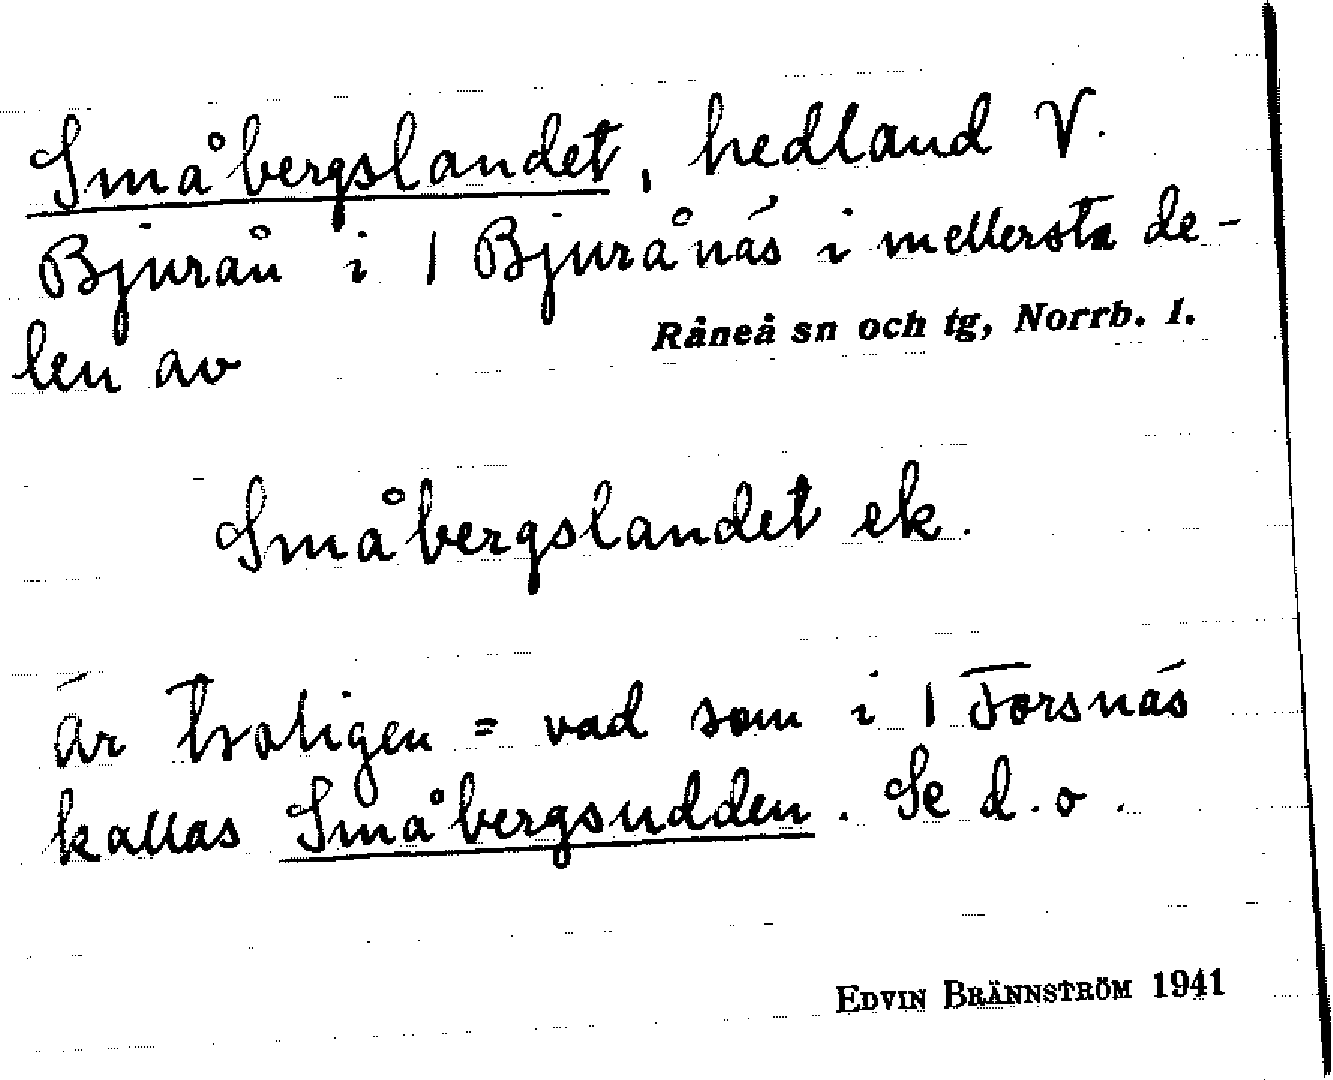 Småbergslandet, hedland V.
Bjurån i 1 Bjurånäs i mellersta de-
len av Råneå sn och tg, Norrb. l.
Småbergslandet ek.
är troligen = vad som i 1 Forsnäs
kallas Småbergsudden. Se d.o.
EDVIN BRÄNNSTRÖM 1941